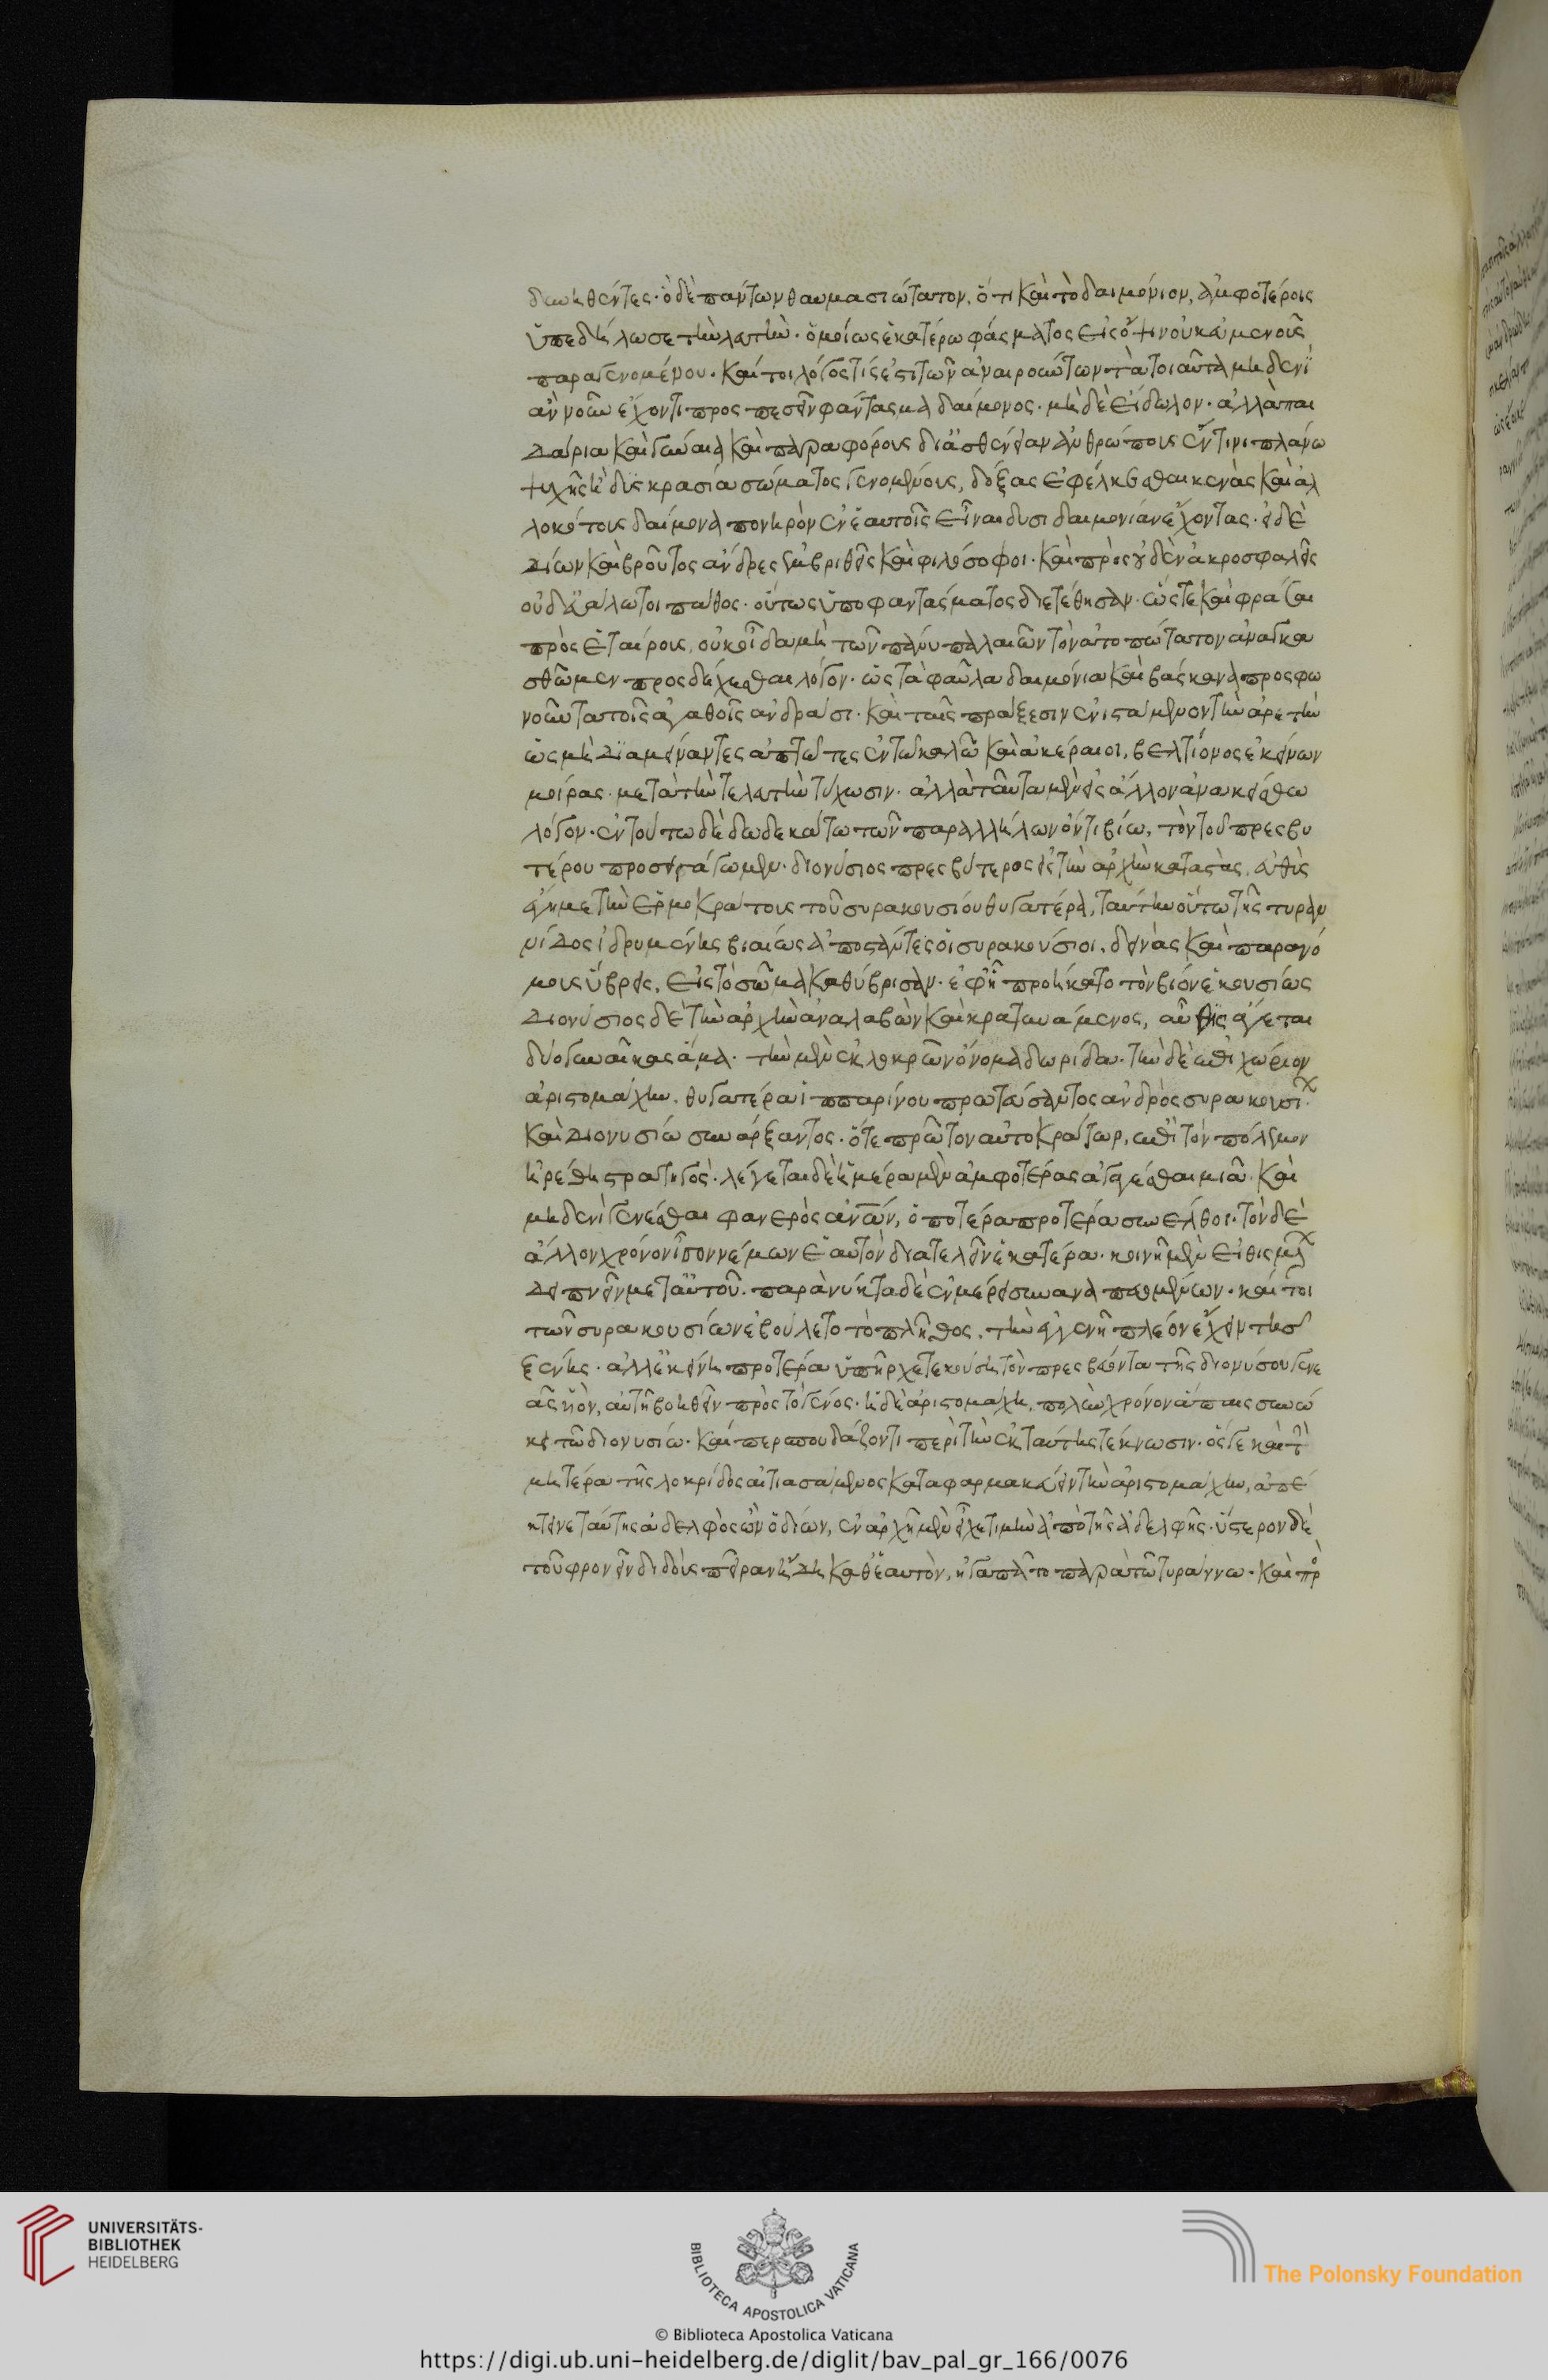 δυνηθέντες· ὃ δὲ πάντων θαυμασιώτατον, ὅτι καὶ τὸ δαιμόνιον, ἀμφοτέροις
ὑπεδήλωσε τὴν τελευτὴν· ὁμοίως ἑκατέρω φάσματος εἰς ὄψιν οὐκ εὐμενοῦς
παραγενομένου· καίτοι λόγος τίς ἐστι τῶν ἀναιρούντων τὰ τοιαῦτα μηδενὶ
ἂν νοῦν ἔχοντι προσπεσεῖν φάντασμα δαίμονος· μὴ δὲ εἴδωλον· ἀλλὰ παι
δάρια καὶ γύναια καὶ παραφόρους δι ἀσθένειαν ἀνθρώπους ἔν τινι πλάνω
ψυχῆς ἢ δυσκρασία σώματος γενομένους, δόξας ἐφέλκεσθαι κενὰς καὶ ἀλ
λοκότους δαίμονα πονηρὸν ἐν ἑαυτοῖς εἶναι δυσιδαιμονίαν ἔχοντας· εἰ δὲ
Δίων καὶ βροῦτος ἄνδρες ἐμβριθεῖς καὶ φιλόσοφοι· καὶ πρὸς οὐδὲν ἀκροσφαλεῖς
οὐδ εὐάλωτοι πάθος· οὕτως ὑπὸ φαντάσματος διετέθησαν· ὥστε καὶ φράσαι
πρὸς ἑταίρους, οὐκ οἶδα μὴ τῶν πάνυ παλαιῶν τὸν ἀτοπώτατον ἀναγκα
σθῶμεν προσδέχεσθαι λόγον· ὡς τὰ φαῦλα δαιμόνια καὶ βάσκανα προσφω
νοῦντα τοῖς ἀγαθοῖς ἀνδράσι· καὶ ταῖς πράξεσιν ἐνιστάμενον τὴν ἀρετὴν
ὡς μὴ διαμείναντες ἀπτῶτες ἐν τῶ καλῶ καὶ ἀκέραιοι, βελτίονος ἐκείνων
μοίρας μετὰ τὴν τελευτὴν τύχωσιν· ἀλλὰ ταῦτα μὲν εἰς ἄλλον ἀνακείσθω
λόγον· ἐν τούτω δὲ δωδεκάτω τῶν παραλλήλων ὄντι βίω, τὸν τοῦ πρεσβυ
τέρου προσεισάγωμεν· διονύσιος πρεσβύτερος εἰς τὴν ἀρχὴν καταστὰς, εὐθὺς
ἔγημε τὴν ἑρμοκράτους τοῦ συρακουσίου θυγατέρα, ταύτην οὔπω τῆς τυραν
νίδος ἱδρυμένης βιαίως ἀποστάντες οἱ συρακούσιοι, δεινὰς καὶ παρανό
μους ὕβρεις, εἰς τὸ σῶμα καθύβρισαν· ἐφ ᾗ προήκατο τὸν βίον ἑκουσίως
Διονύσιος δὲ τὴν ἀρχὴν ἀναλαβὼν καὶ κρατυνάμενος, αὖθις ἄγεται
δύο γυναῖκας ἅμα· τὴν μὲν ἐκ λοκρῶν ὄνομα δωρίδα· τὴν δὲ ἐπιχώριον
ἀριστομάχην, θυγατέρα ἱππαρίνου πρωτεύσαντος ἀνδρὸς συρακουσίων
καὶ Διονυσίω συνάρξαντος· ὅτε πρῶτον αὐτοκράτωρ, ἐπὶ τὸν πόλεμον
ἡρέθη στρατηγὸς· λέγεται δὲ ἡμέρα μὲν ἀμφοτέρας ἀγαγέσθαι μιᾶ· καὶ
μηδενὶ γενέσθαι φανερὸς ἀνθρώπων, ὁποτέρα προτέρα συνέλθοι· τὸν δὲ
ἄλλον χρόνον ἴσον νέμων ἑαυτὸν διατελεῖν ἑκατέρα· κοινῆ μὲν εἰθισμένων
δειπνεῖν μετ αὐτοῦ· παρὰ νύκτα δὲ ἐν μέρει συναναπαυομένων· καίτοι
τῶν συρακουσίων ἐβούλετο τὸ πλῆθος, τὴν ἐγγενῆ πλέον ἔχειν τῆς
ξένης· ἀλλ ἐκείνη προτέρα ὑπῆρχε τεκούση τὸν πρεσβεύοντα τῆς διονύσου γενε
ᾶς υἱὸν, αὐτῆ βοηθεῖν πρὸς τὸ γένος· ἡ δὲ ἀριστομάχη, πολὺν χρόνον ἄπαις συνώ
κει τῶ διονυσίω· καίπερ σπουδάζοντι περὶ τὴν ἐκ ταύτης τέκνωσιν· ὅς γε καὶ τὴν
μητέρα τῆς λοκρίδος αἰτιασάμενος καταφαρμακεύειν τὴν ἀριστομάχην, ἀπέ
κτεινε ταύτης ἀδελφὸς ὢν ὁ δίων, ἐν ἀρχῆ μὲν εἶχε τιμὴν ἀπὸ τῆς ἀδελφῆς· ὕστερον δὲ
τοῦ φρονεῖν διδοὺς πεῖραν ἤδη καθ ἑαυτὸν, ἠγαπᾶτο παρὰ τῶ τυράννω· καὶ πρὸ
UNIVERSITÄTS-
BIBLIOTHEK
HEIDELBERG
BIBLIOTECA APOSTOLICA VATICANA
The Polonsky Foundation
© Biblioteca Apostolica Vaticana
https://digi.ub.uni-heidelberg.de/diglit/bav_pal_gr_166/0076